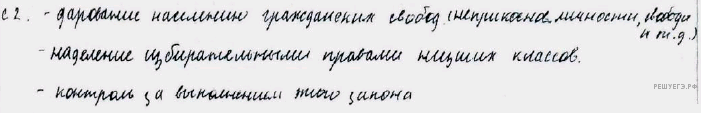 с2. - дарование населению гражданских свобод (неприкоснов. личности, свободы
и т.д.)
- наделение избирательными правами низших классов.
- контроль за выполнением этого закона
РЕШУЕГЭ.РФ